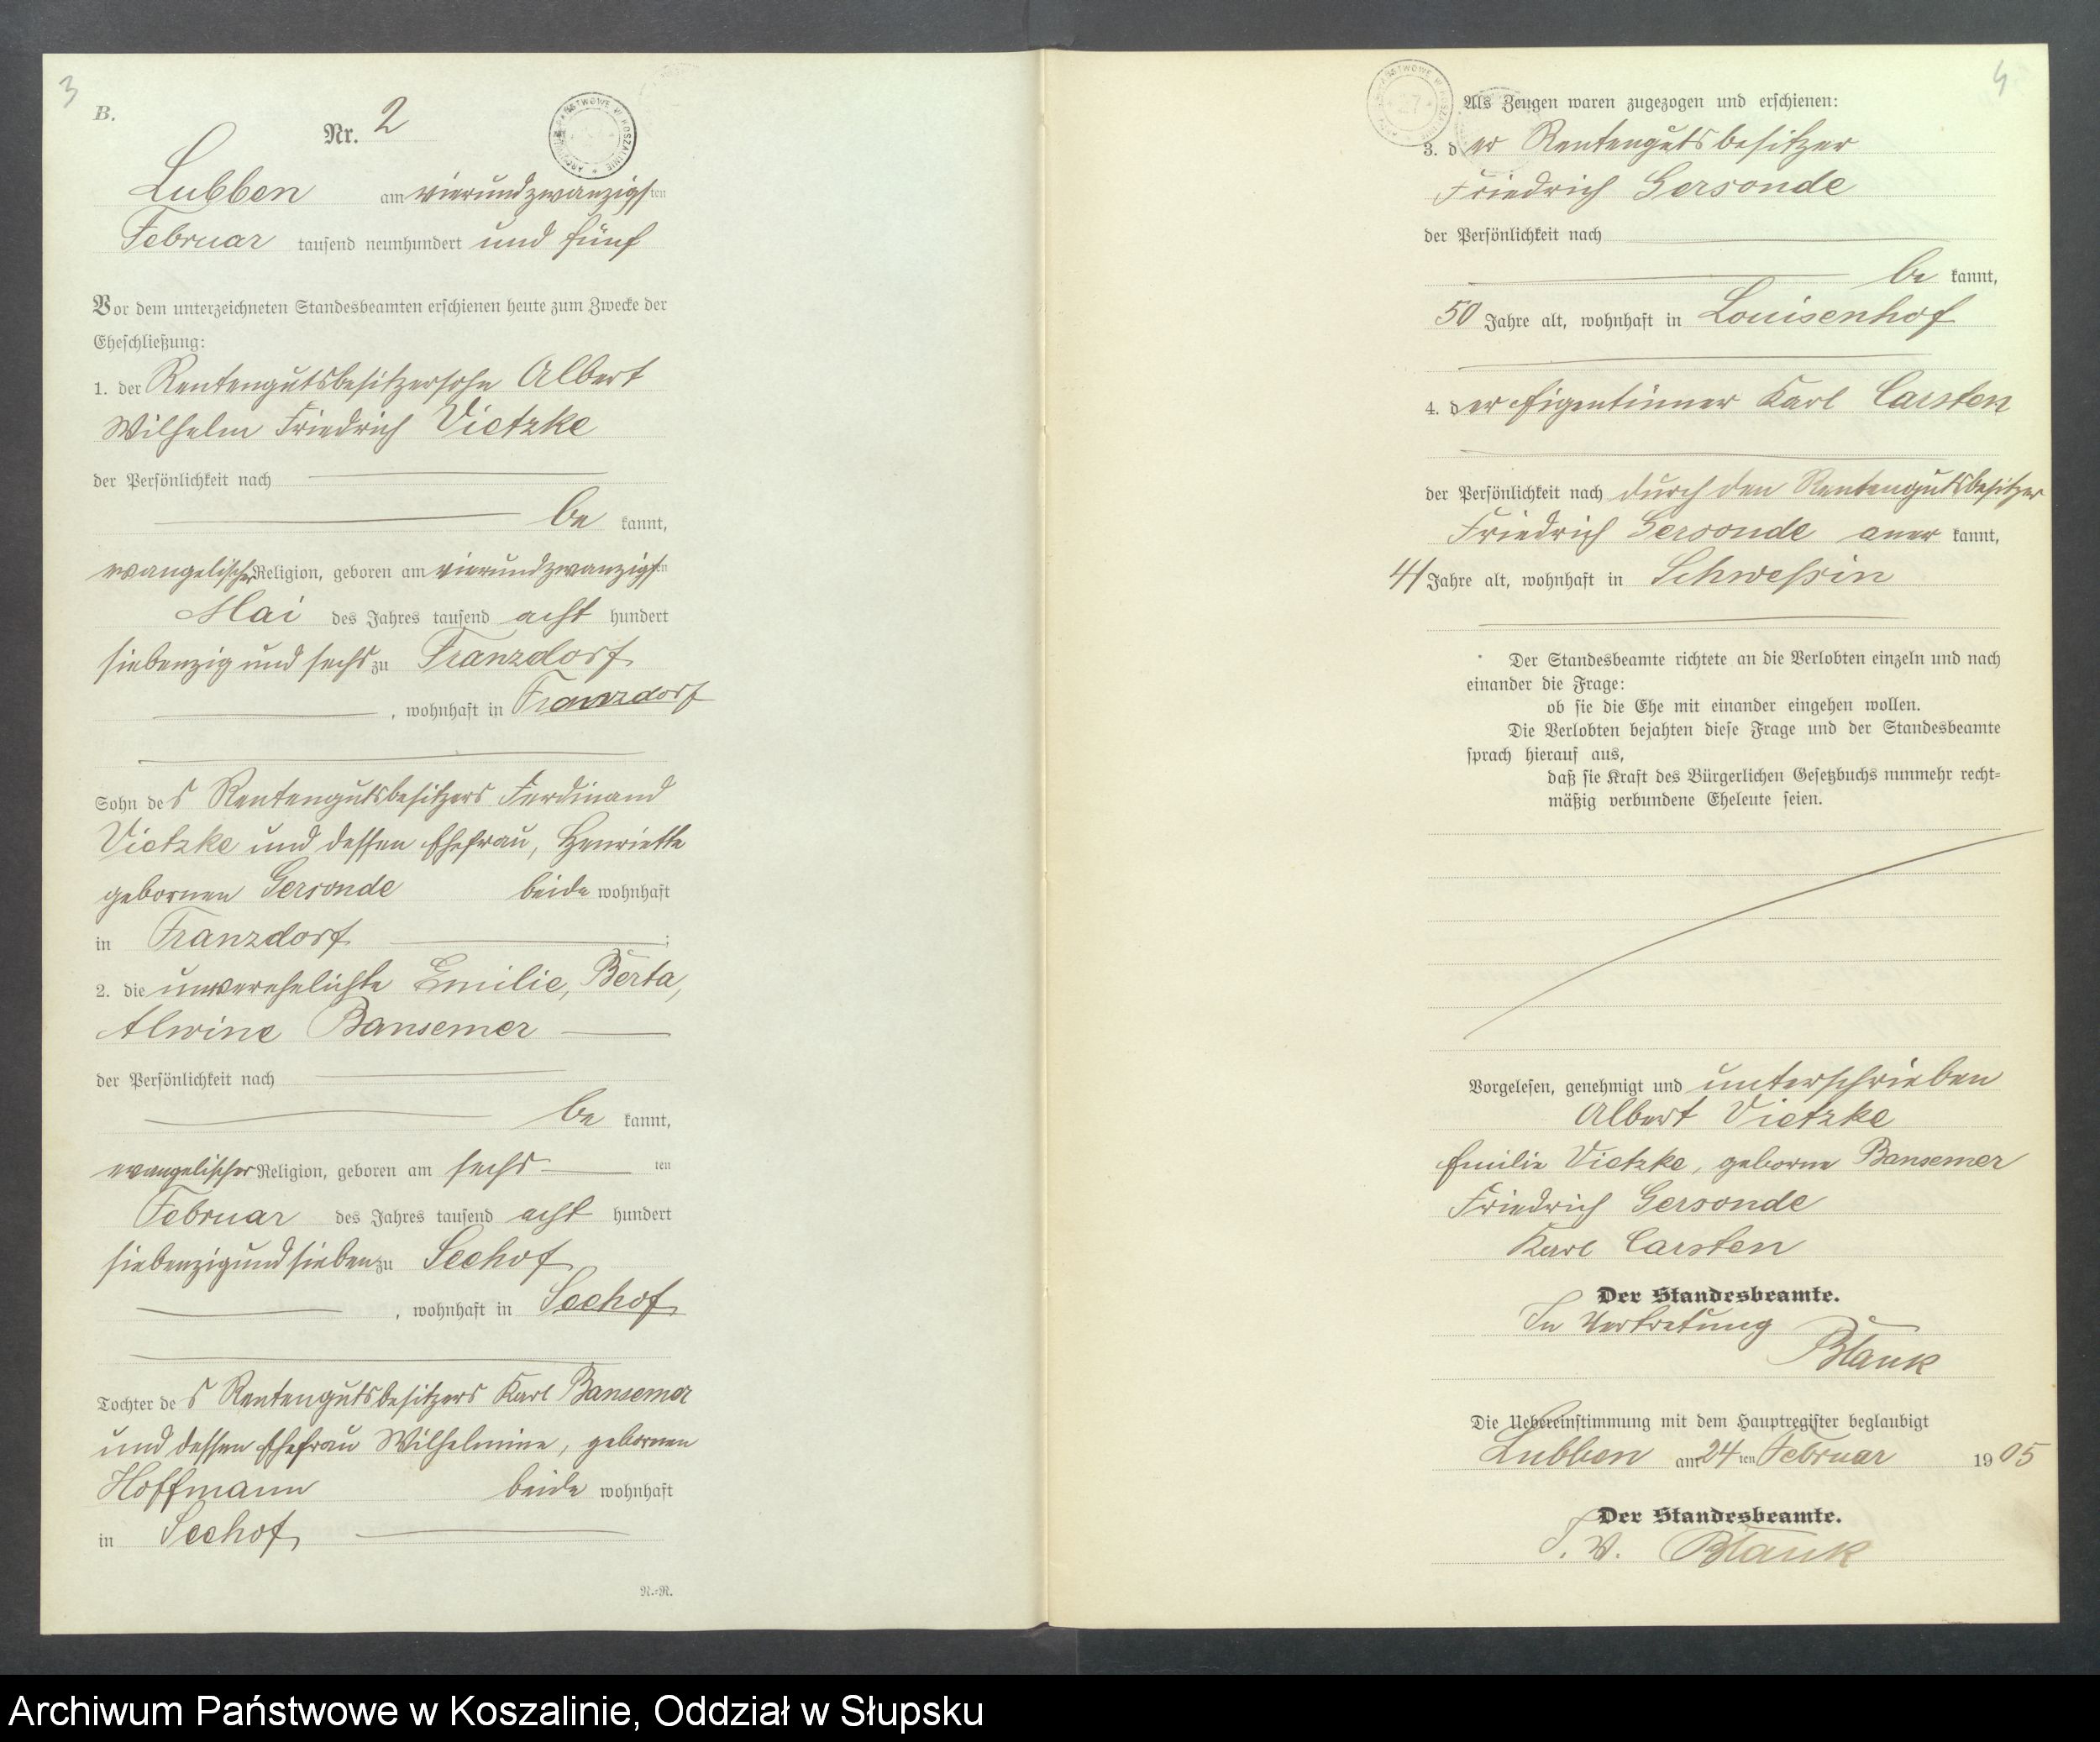 3
B.
Nr. 2
Lubben am vierundzwanzigsten
Februar tausend neunhundert und fünf
Vor dem unterzeichneten Standesbeamten erschienen heute zum Zwecke der
Eheschließung:
1. der Rentengutsbesitzersohn Albert
Wilhelm Friedrich Vietzke
der Persönlichkeit nach
be kannt,
evangelischer Religion, geboren am vierundzwanzigsten
Mai des Jahres tausend acht hundert
siebenzig und sechs zu Franzdorf
, wohnhaft in Franzdorf
Sohn des Rentengutsbesitzers Ferdinand
Vietzke und dessen Ehefrau, Henriette
gebornen Gersonde beide wohnhaft
in Franzdorf ;
2. die unverehelichte Emilie, Berta,
Alwine Bansemer
der Persönlichkeit nach
be kannt,
evangelischer Religion, geboren am sechs ten
Februar des Jahres tausend acht hundert
siebenzigundsieben zu Seehof
, wohnhaft in Seehof
Tochter des Rentengutsbesitzers Karl Bansemer
und dessen Ehefrau Wilhelmine, gebornen
Hoffmann beide wohnhaft
in Seehof
N.-N.
4
Als Zeugen waren zugezogen und erschienen:
3. der Rentengutsbesitzer
Friedrich Gersonde
der Persönlichkeit nach
be kannt,
50 Jahre alt, wohnhaft in Louisenhof
4. der Eigentümer Karl Carsten
der Persönlichkeit nach durch den Rentengutsbesitzer
Friedrich Gersonde aner kannt,
41 Jahre alt, wohnhaft in Schwessin
Der Standesbeamte richtete an die Verlobten einzeln und nach
einander die Frage:
ob sie die Ehe mit einander eingehen wollen.
Die Verlobten bejahten diese Frage und der Standesbeamte
sprach hierauf aus,
daß sie Kraft des Bürgerlichen Gesetzbuchs nunmehr recht=
mäßig verbundene Eheleute seien.
Vorgelesen, genehmigt und unterschrieben
Albert Vietzke
Emilie Vietzke, geborne Bansemer
Friedrich Gersonde
Karl Carsten
Der Standesbeamte.
In Vertretung
Blank
Die Uebereinstimmung mit dem Hauptregister beglaubigt
Lubben am 24 ten Februar 1905
Der Standesbeamte.
I. V. Blank
Archiwum Państwowe w Koszalinie, Oddział w Słupsku